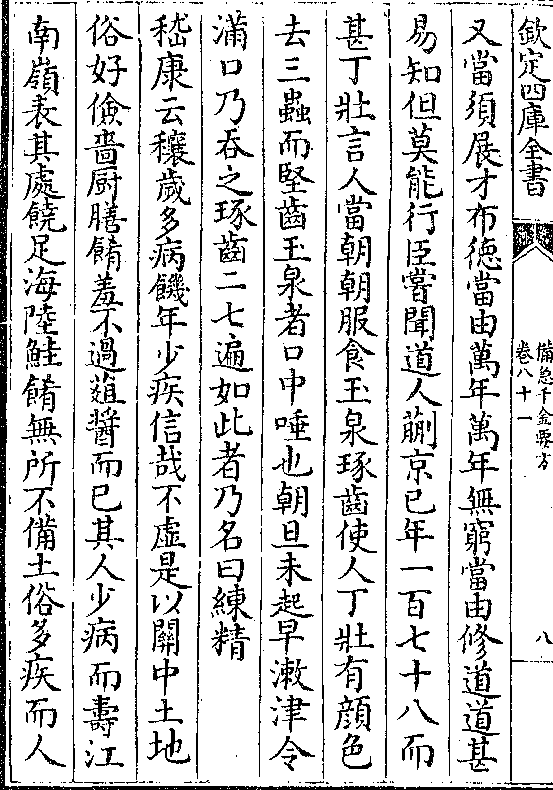 欽定四庫全書
備急千金要方
卷八十一
八
又當須展才布德當由萬年萬年無窮當由修道道甚
易知但莫能行臣嘗聞道人蒯京已年一百七十八而
甚丁壯言人當朝朝服食玉泉琢齒使人丁壯有顔色
去三蟲而堅齒玉泉者口中唾也朝旦未起早漱津令
滿口乃吞之琢齒二七遍如此者乃名曰練精
嵇康云穰歲多病饑年少疾信哉不虛是以關中土地
俗好儉嗇厨膳餚羞不過葅醬而已其人少病而壽江
南嶺表其處饒足海陸鮭餚無所不備土俗多疾而人